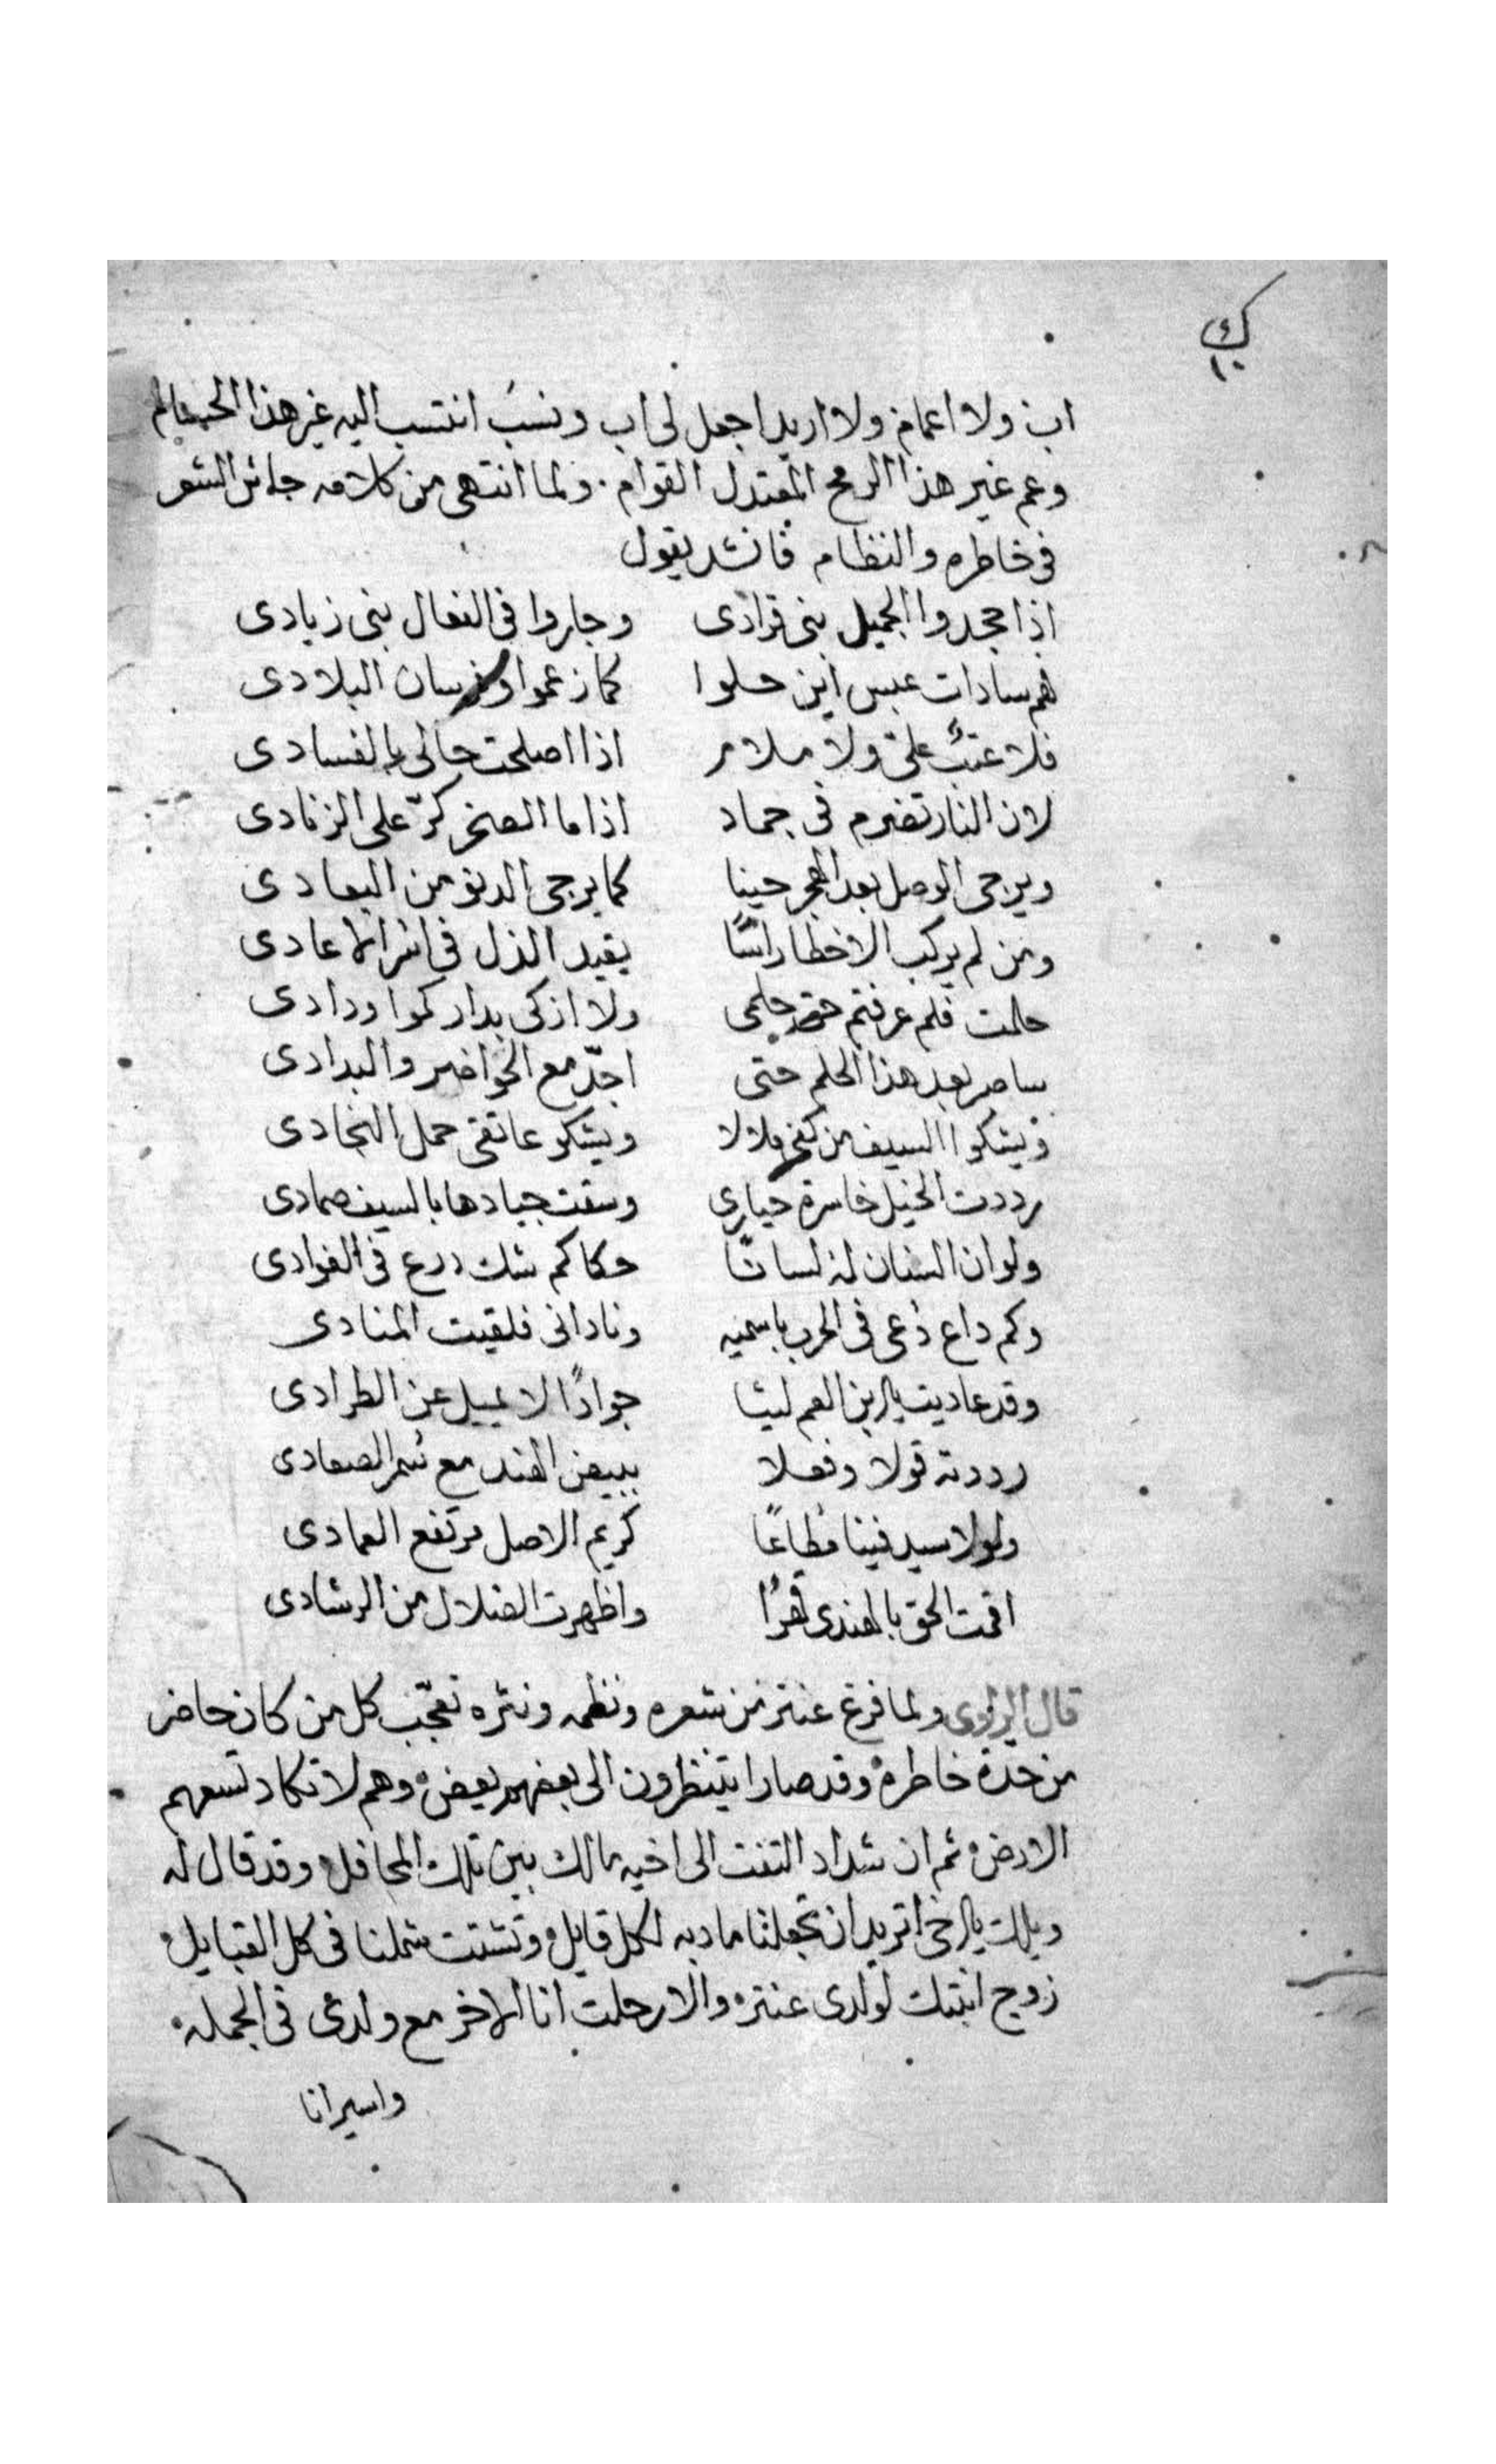 اب ولا اعمام ولا اريد اجعل لى اب ونسب انتسب اليه غير هذا الحسام
وعم غير هذا الرمح المعتدل القوام . ولما انتهى من كلامه جاش الشعر
فى خاطره والنظام فانشد يقول
اذا جحدوا الجميل بنى قرادى وجاروا فى الفعال بنى زيادى
هم سادات عبس اين حلوا كما زعموا وفرسان البلادى
فلا عتبٌ علىّ ولا ملام اذا اصلحت حالى بالفسادى
لان النار تضرم فى جماد اذا ما الصخر كرّ على الزنادى
ويرجى الوصل بعد الهجر حينا كما يرجى الدنو من البعادى
ومن لم يركب الاخطار يقيد الذل فى اسر الاعادى
حلمت فلم عرفتم حق حلمى ولا ازكى بداركموا ودادى
ساصر بعد هذا الحلم حتى اجدّ مع الحواضر والبدادى
ويشكوا السيف من كفى ملالا ويشكو عاتقى حمل النجادى
رددت الخيل خاسرة حيارى وسقت جيادها بالسيف صمادى
ولو ان السنان له لسانًا حكاكم شك درع فى الفوادى
وكم داع دعى فى الحرب باسميه ونادانى فلقيت المنادى
وقد عاديت يا ابن العم ليثا جوادًا لا يميل عن الطرادى
رددته قولا وفعلا ببيض الهند مع سُمر الصعادى
ولولا سيد فينا مُطاعًا كريم الاصل مرتفع العمادى
اقمت الحق بالهندى قهرًا واظهرت الضلال من الرشادى
قال الراوى ولما فرغ عنتر من شعره ونظمه ونثره تعجّب كل من كان حاضر
من حدّة خاطره وقد صارا يتنظرون الى بعضهم بعض وهم لا تكاد تسعهم
الارض ثم ان شداد التفت الى اخيه مالك بين تلك المحافل وقد قال له
ويلك يا اخى اتريد ان تجعلنا مادبه لكل قايل وتشتت شملنا فى كل القبايل
زوج ابنتك لولدى عنتر والا رحلت انا الاخر مع ولدى فى الجمله
واسير انا